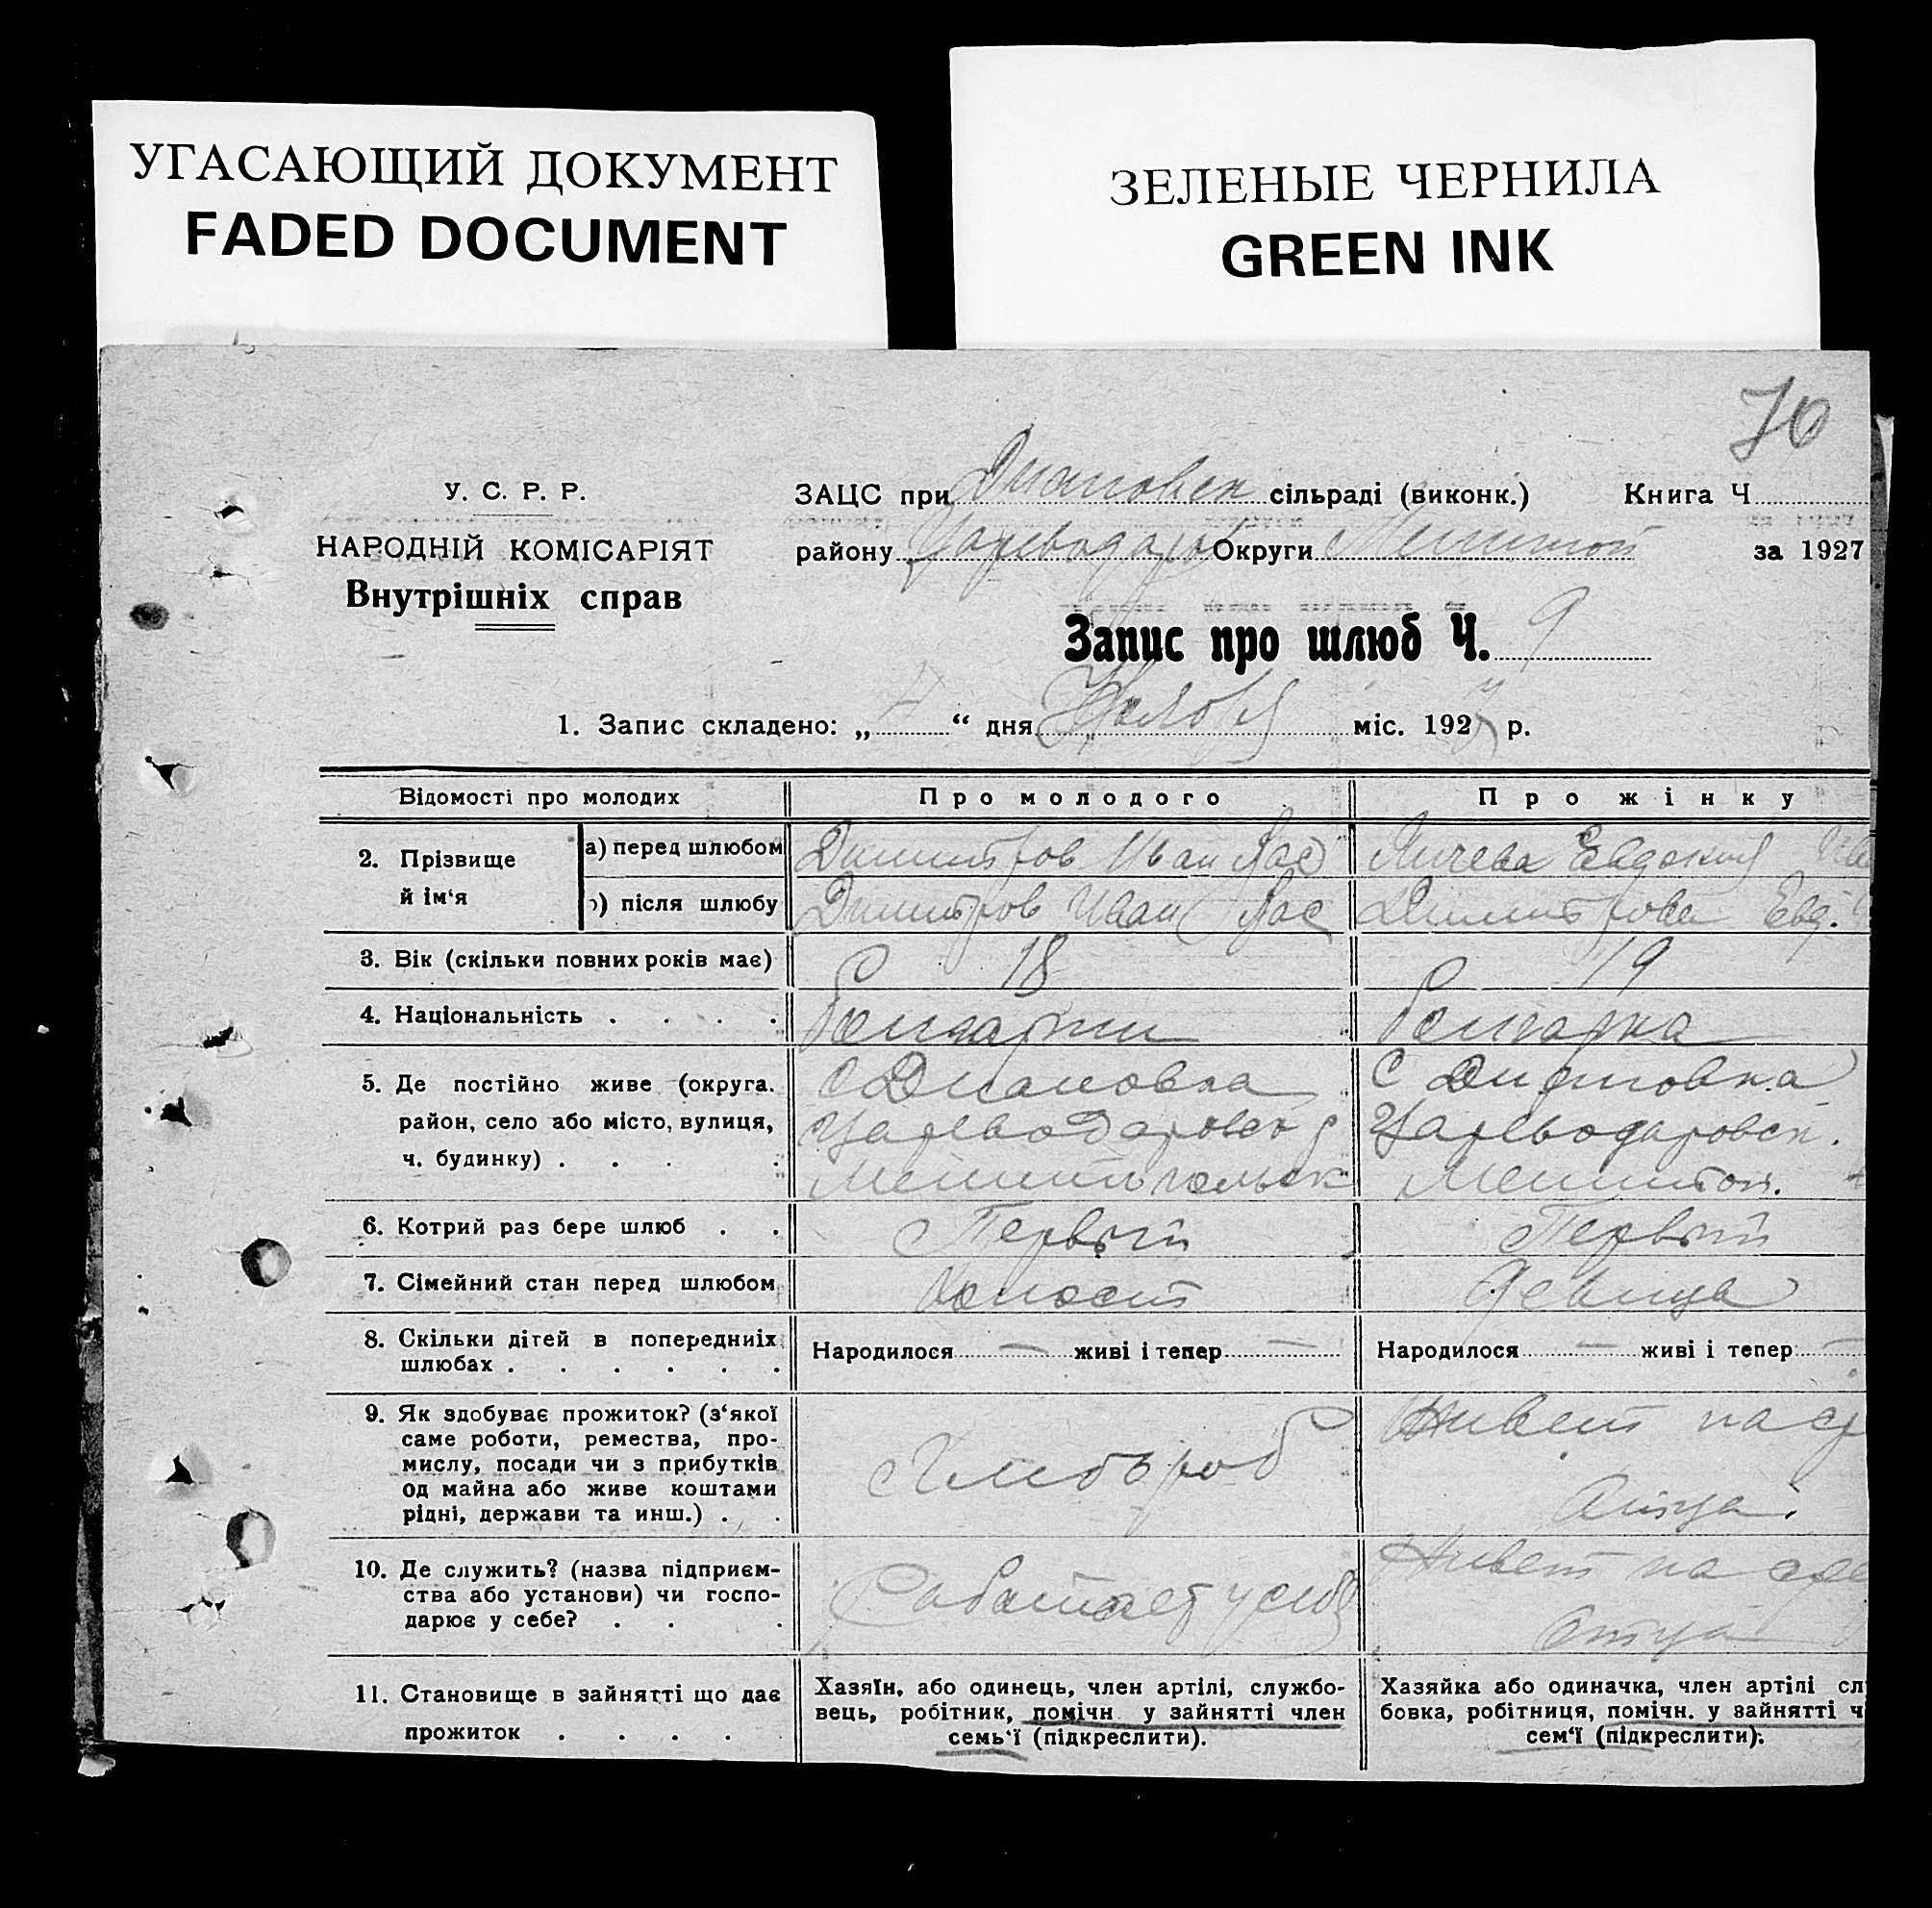 УГАСАЮЩИЙ ДОКУМЕНТ
FADED DOCUMENT
ЗЕЛЕНЫЕ ЧЕРНИЛА
GREEN INK
76
У. С. Р. Р.
НАРОДНІЙ КОМІСАРІЯТ
Внутрішніх справ
ЗАЦС при Диановск сільраді (виконк.) Книга Ч
району Цареводаров Округи за 1927
Запис про шлюб Ч. 9
1. Запис складено: „ “ дня міс. 1927 р.
Відомості про молодих Про молодого Про жінку
2. Прізвище й ім‘я
а) перед шлюбом Димитров Иван Яичева Евдокия
після шлюбу Димитров Иван Димитрова Евд.
3. Вік (скільки повних років має) 18 19
4. Національність . . . . Болгарин Болгарка
5. Де постійно живе (округа. С Диановка С Диановка
район, село або місто, вулиця, Цареводаровск Цареводаровск.
ч. будинку) . . . . Мелитопольск Мелитоп.
6. Котрий раз бере шлюб . . Первый Первый
7. Сімейний стан перед шлюбом Холост Девица
8. Скільки дітей в попередниіх
шлюбах . . . . . . Народилося — живі і тепер — Народилося — живі і тепер —
9. Як здобуває прожиток? (з‘якої Живет на
саме роботи, ремества, про-
мислу, посади чи з прибутків Хлебороб
од майна або живе коштами Отца.
рідні, держави та инш.) . .
10. Де служить? (назва підприєм- Живет на
ства або установи) чи госпо- Работает у себя
дарює у себе? . . . Отца
11. Становище в зайнятті що дає
прожиток . . . .
Хазяїн, або одинець, член артілі, службо-
вець, робітник, помічн у зайнятті член
семь‘ї (підкреслити).
Хазяйка або одиначка, член артілі сл
бовка, робітниця, помічн. у зайнятті ч
сем‘ї (підкреслити).